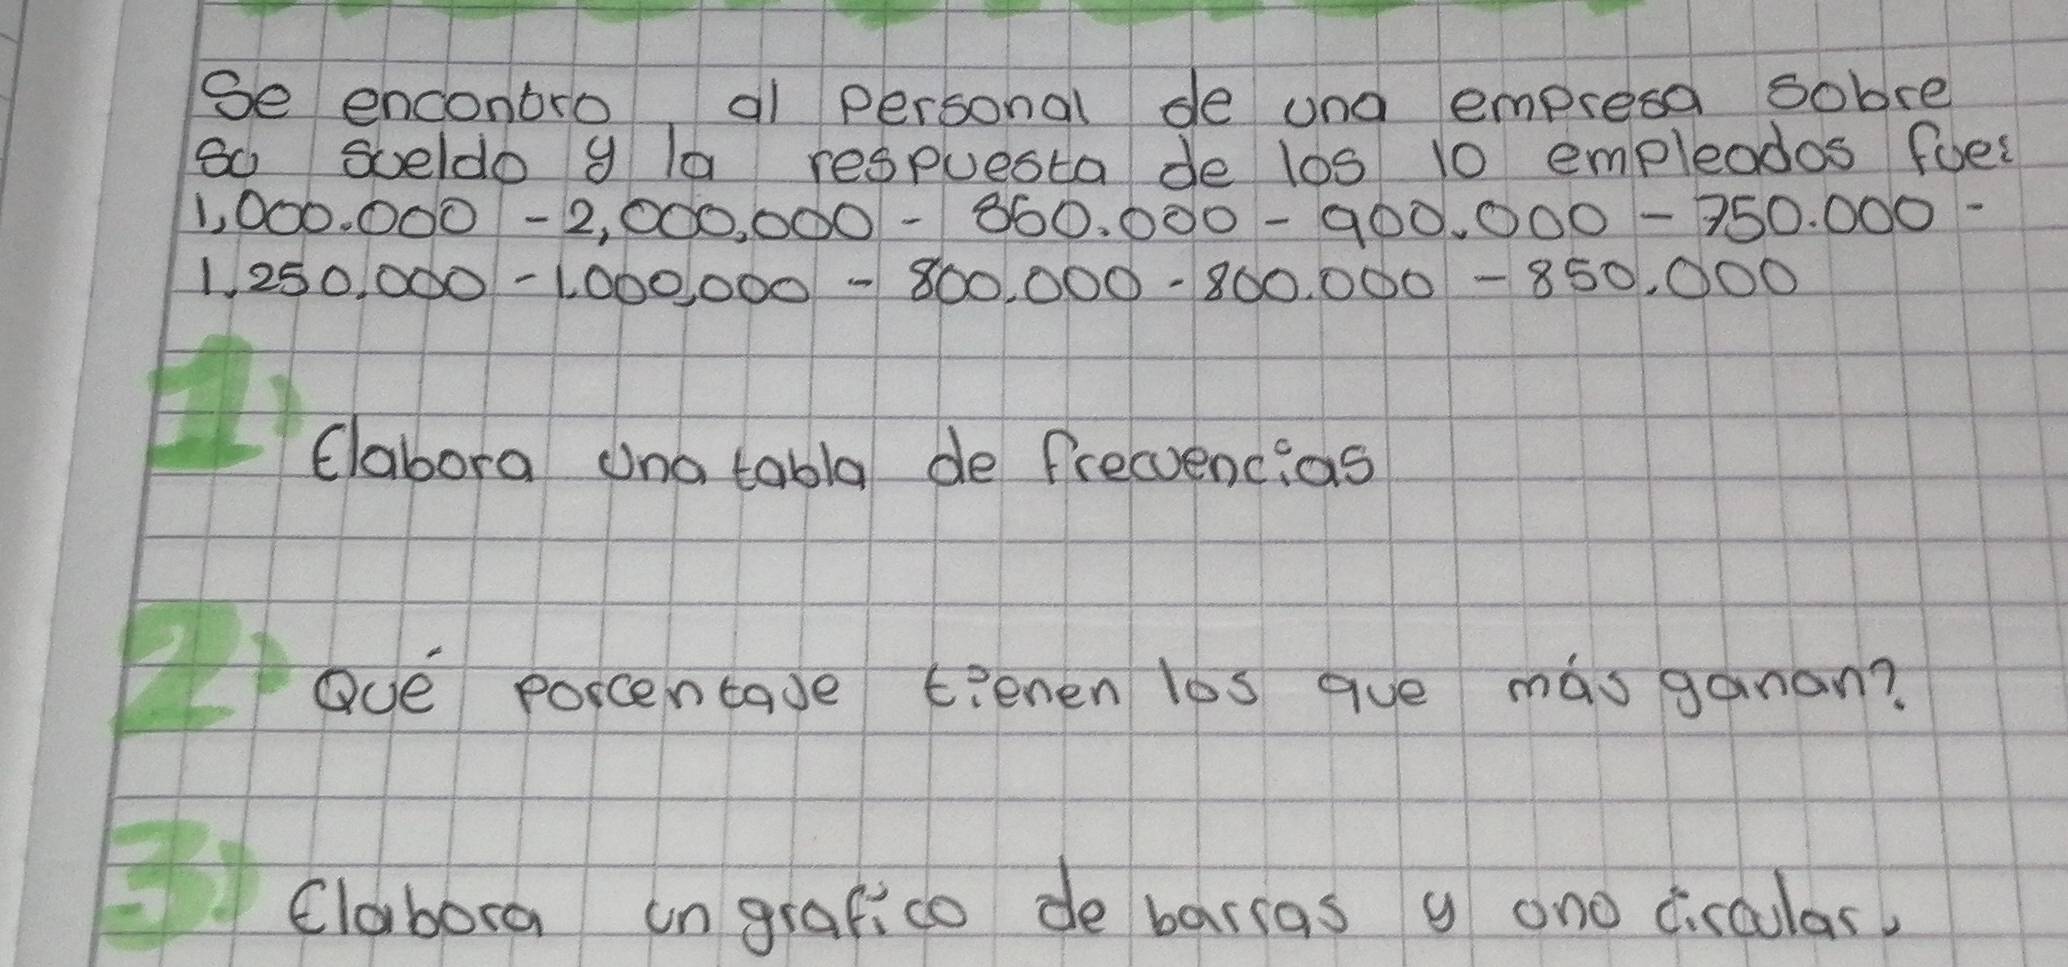 Se encontro, al personal de una empresa sobre
su sueldo y la respuesta de los 10 empleados fue:
1,000.000 - 2,000,000 - 860.000 - 900.000 - 750.000 -
1.250.000 - 1.000,000 - 800.000 - 800.000 - 850.000
1) Elabora una tabla de frecuencias
2) Qué porcentaje tienen los que más ganan?
3) Elabora un grafico de barras y uno circular.